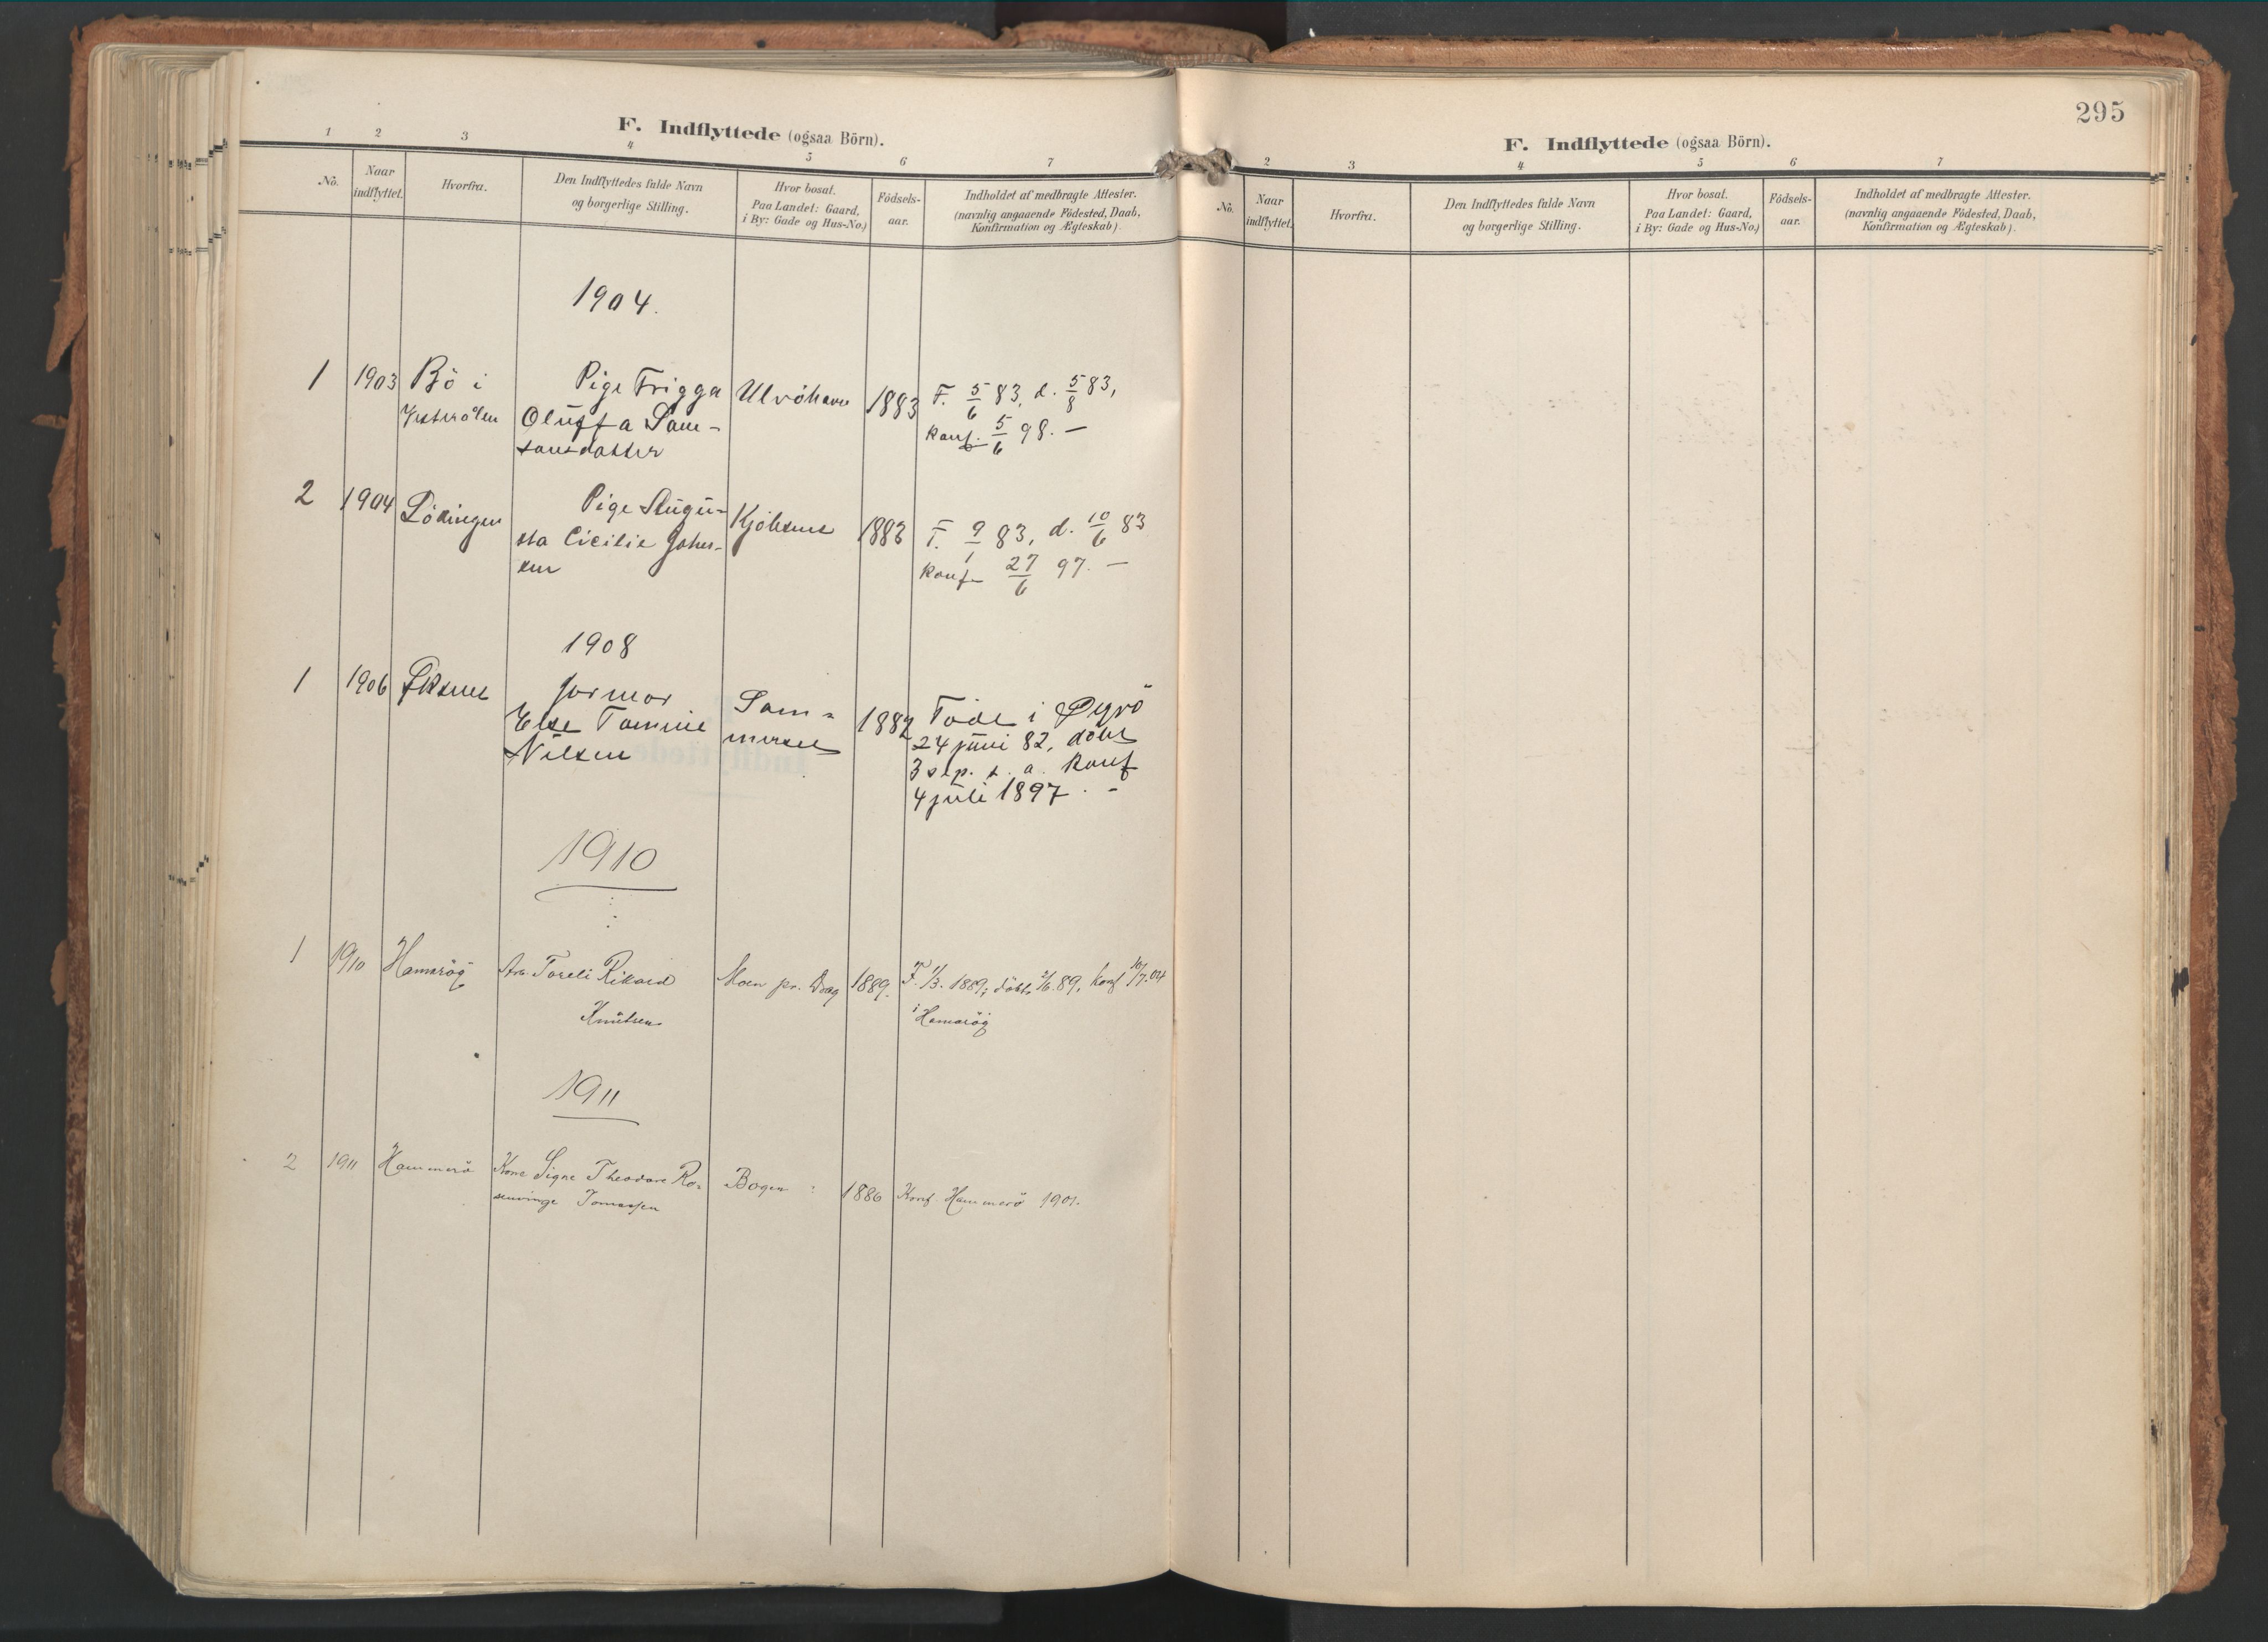 F. Indflyttede (ogsaa Börn).
1 2 3 4 5 6 7
No. Naar indflyttet. Hvorfra. Den Indflyttedes fulde Navn og borgerlige Stilling. Hvor bosat. Paa Landet: Gaard, i By: Gade og Hus-No.) Födsels-aar. Indholdet af medbragte Attester. (navnlig angaaende Födested, Daab, Konfirmation og Ægteskab).
1904.
1 1903 Bö i Pige Frigga Ulvöhavn 1883 F. 5/6 83, d. 5/8 83,
Vesterålen Oluffa Sam- konf. 5/6 98. —
sonsdatter
2 1904 Lödingen Pige Augu- Kjöbsnes 1883 F. 9/1 83, d. 10/6 83
sta Cicilie Johan- konf 27/6 97. —
sen
1908
1 1906 Jormor Som- 1882 Föde i
Else Tomine mersel 24 juni 82, döbt
Nilsen 3 sep. s. a. konf
4 juli 1897. -
1910
1 1910 Hamarög Toreli Rikard Moen pr. Drag 1889. F. 1/3. 1889; döbt. 2/6.89, konf 10/7.04
Knutsen i Hamarög
1911
2 1911 Hammerö Kone Signe Theodore Ro- Bogen 1886 Konf. Hammerö 1901.
senvinge Tomassen
295
F. Indflyttede (ogsaa Börn).
2 3 4 5 6 7
No. Naar indflyttet. Hvorfra. Den Indflyttedes fulde Navn og borgerlige Stilling. Hvor bosat. Paa Landet: Gaard, i By: Gade og Hus-No.) Födsels-aar. Indholdet af medbragte Attester. (navnlig angaaende Födested, Daab, Konfirmation og Ægteskab).